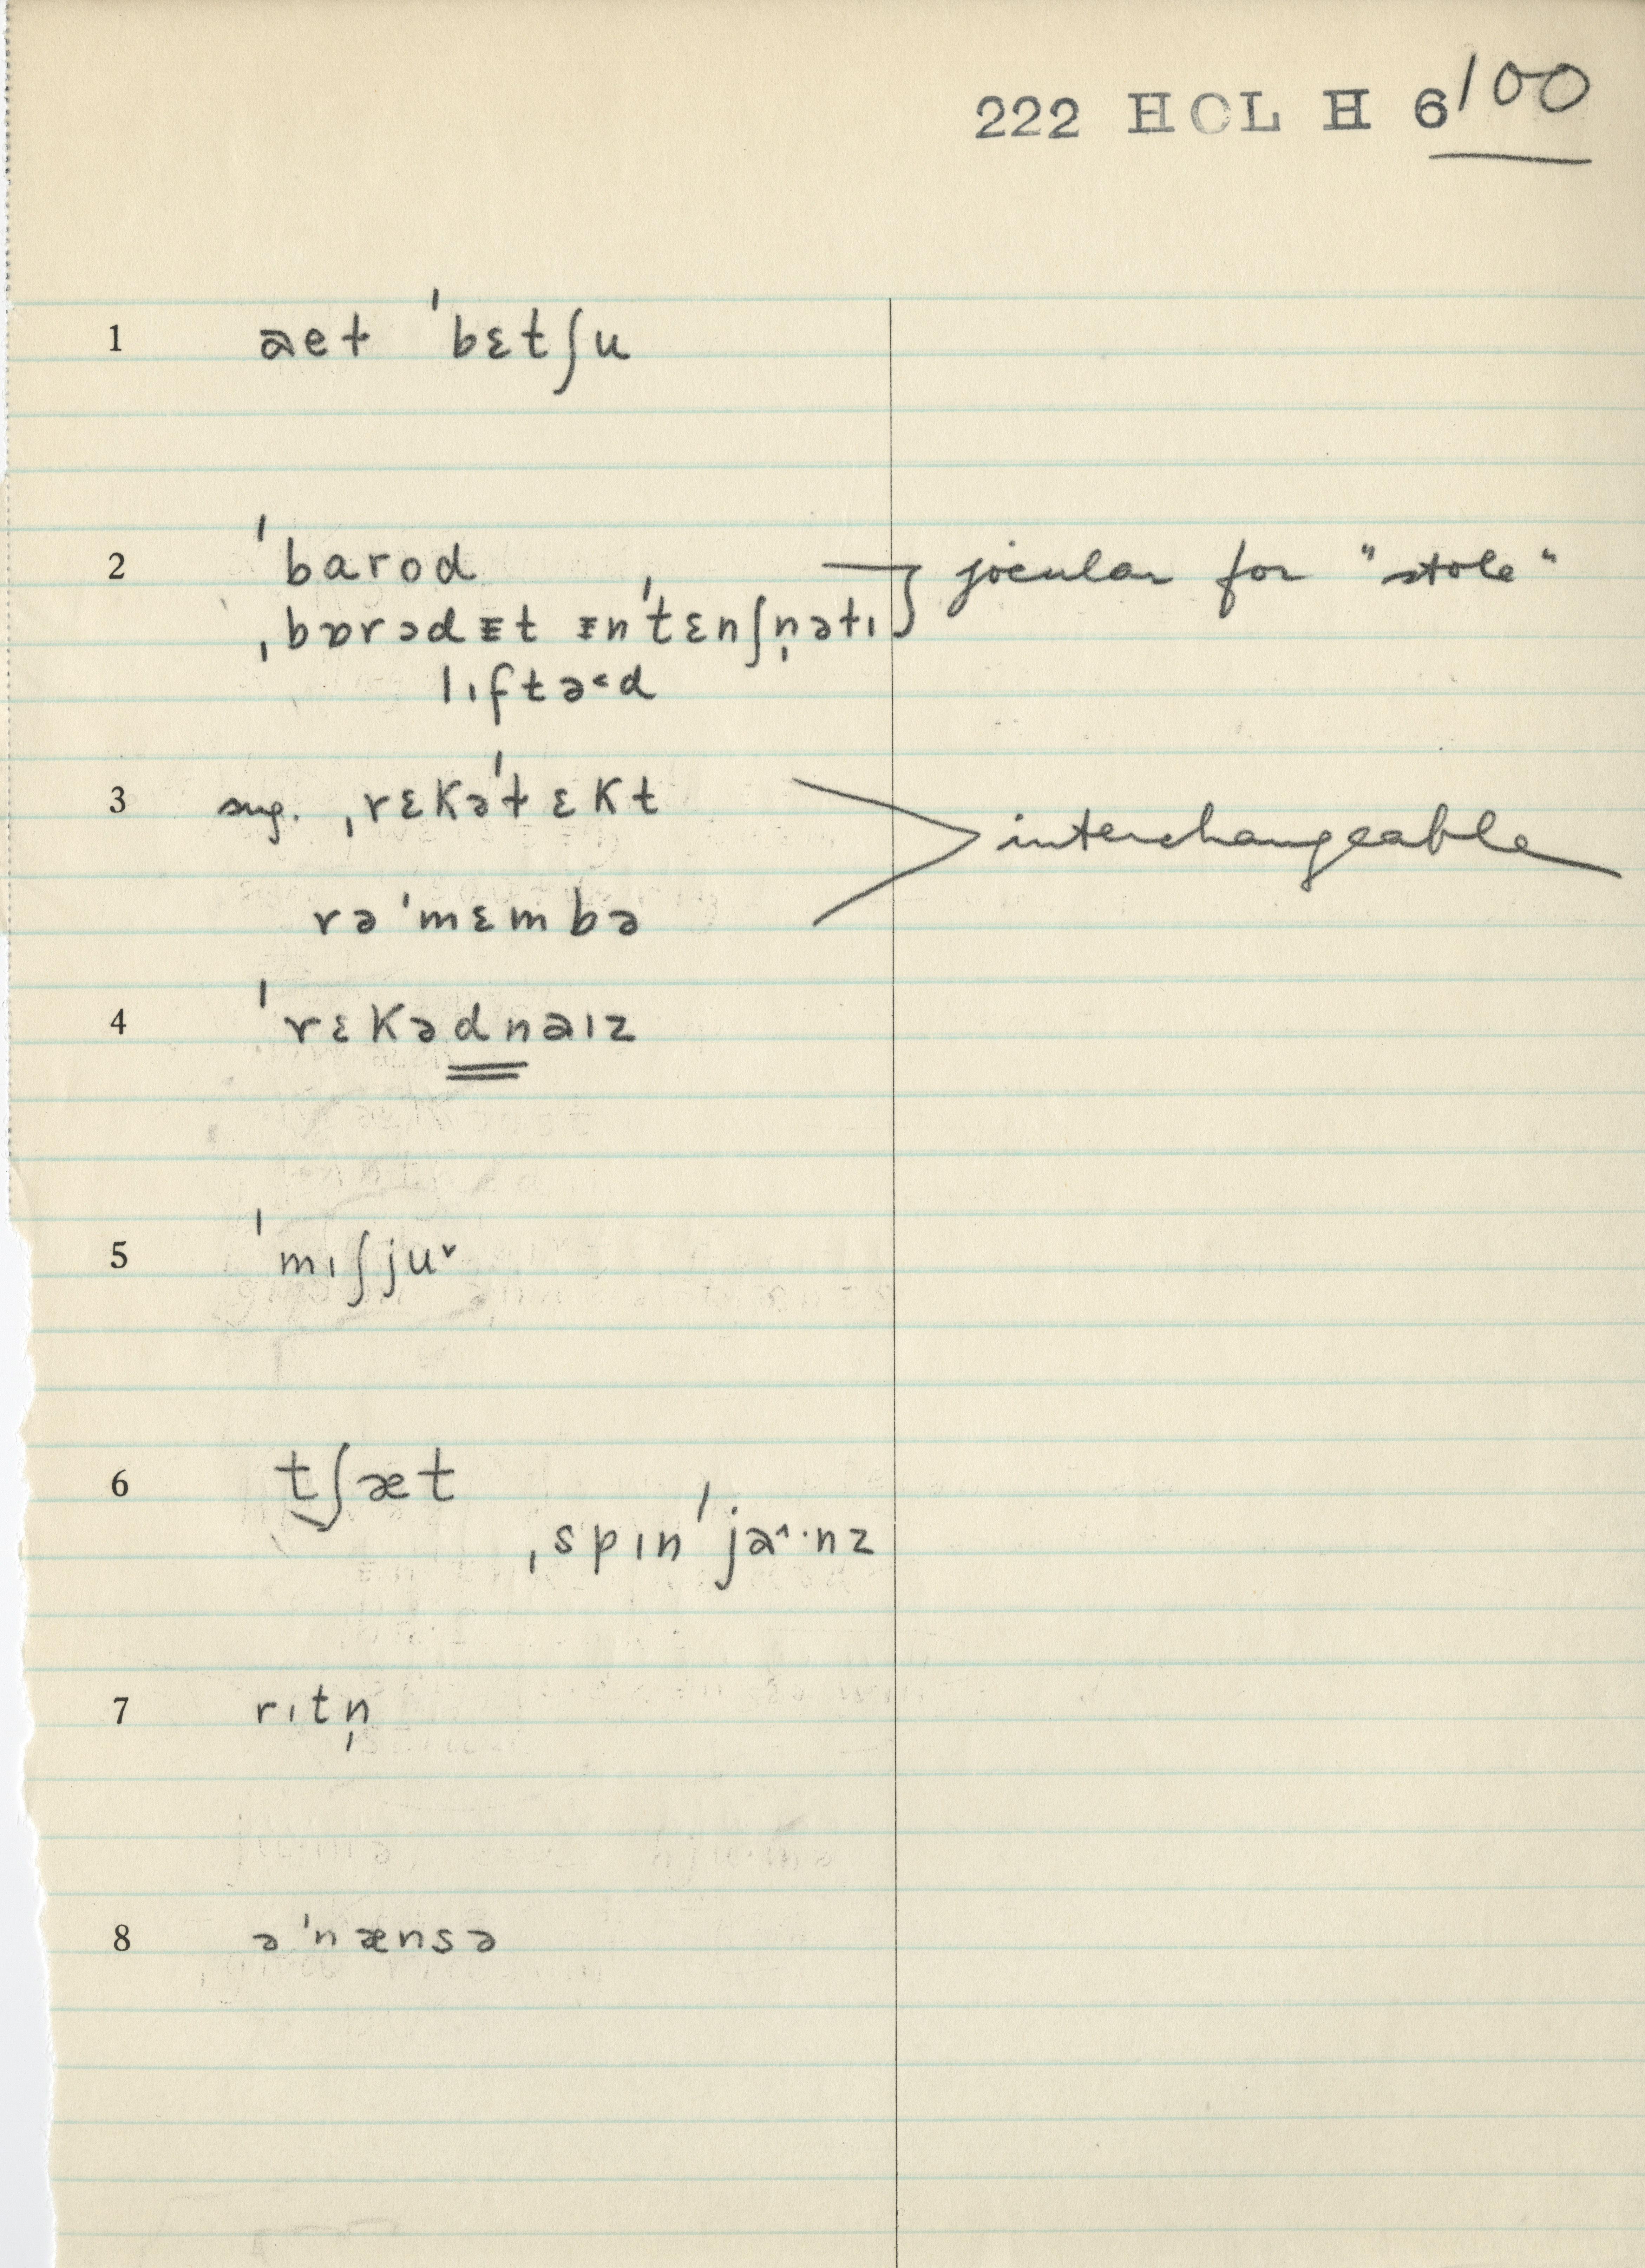 222 HOL H 6/100
1 aet ˈbɛtʃu
2 ˈbarod
ˌbɒrədᵻt ᵻnˈtɛnʃn̩ətɪ jocular for "stole"
lɪftə˂d
3 sug. ˌrɛkəˈtɛkt
interchangeable
rəˈmɛmbə
4 ˈrɛkədnaɪz
5 ˈmɪʃju˅
6 tʃæt
ˌspɪnˈja˄·nz
7 rɪtn̩
8 əˈnænsə